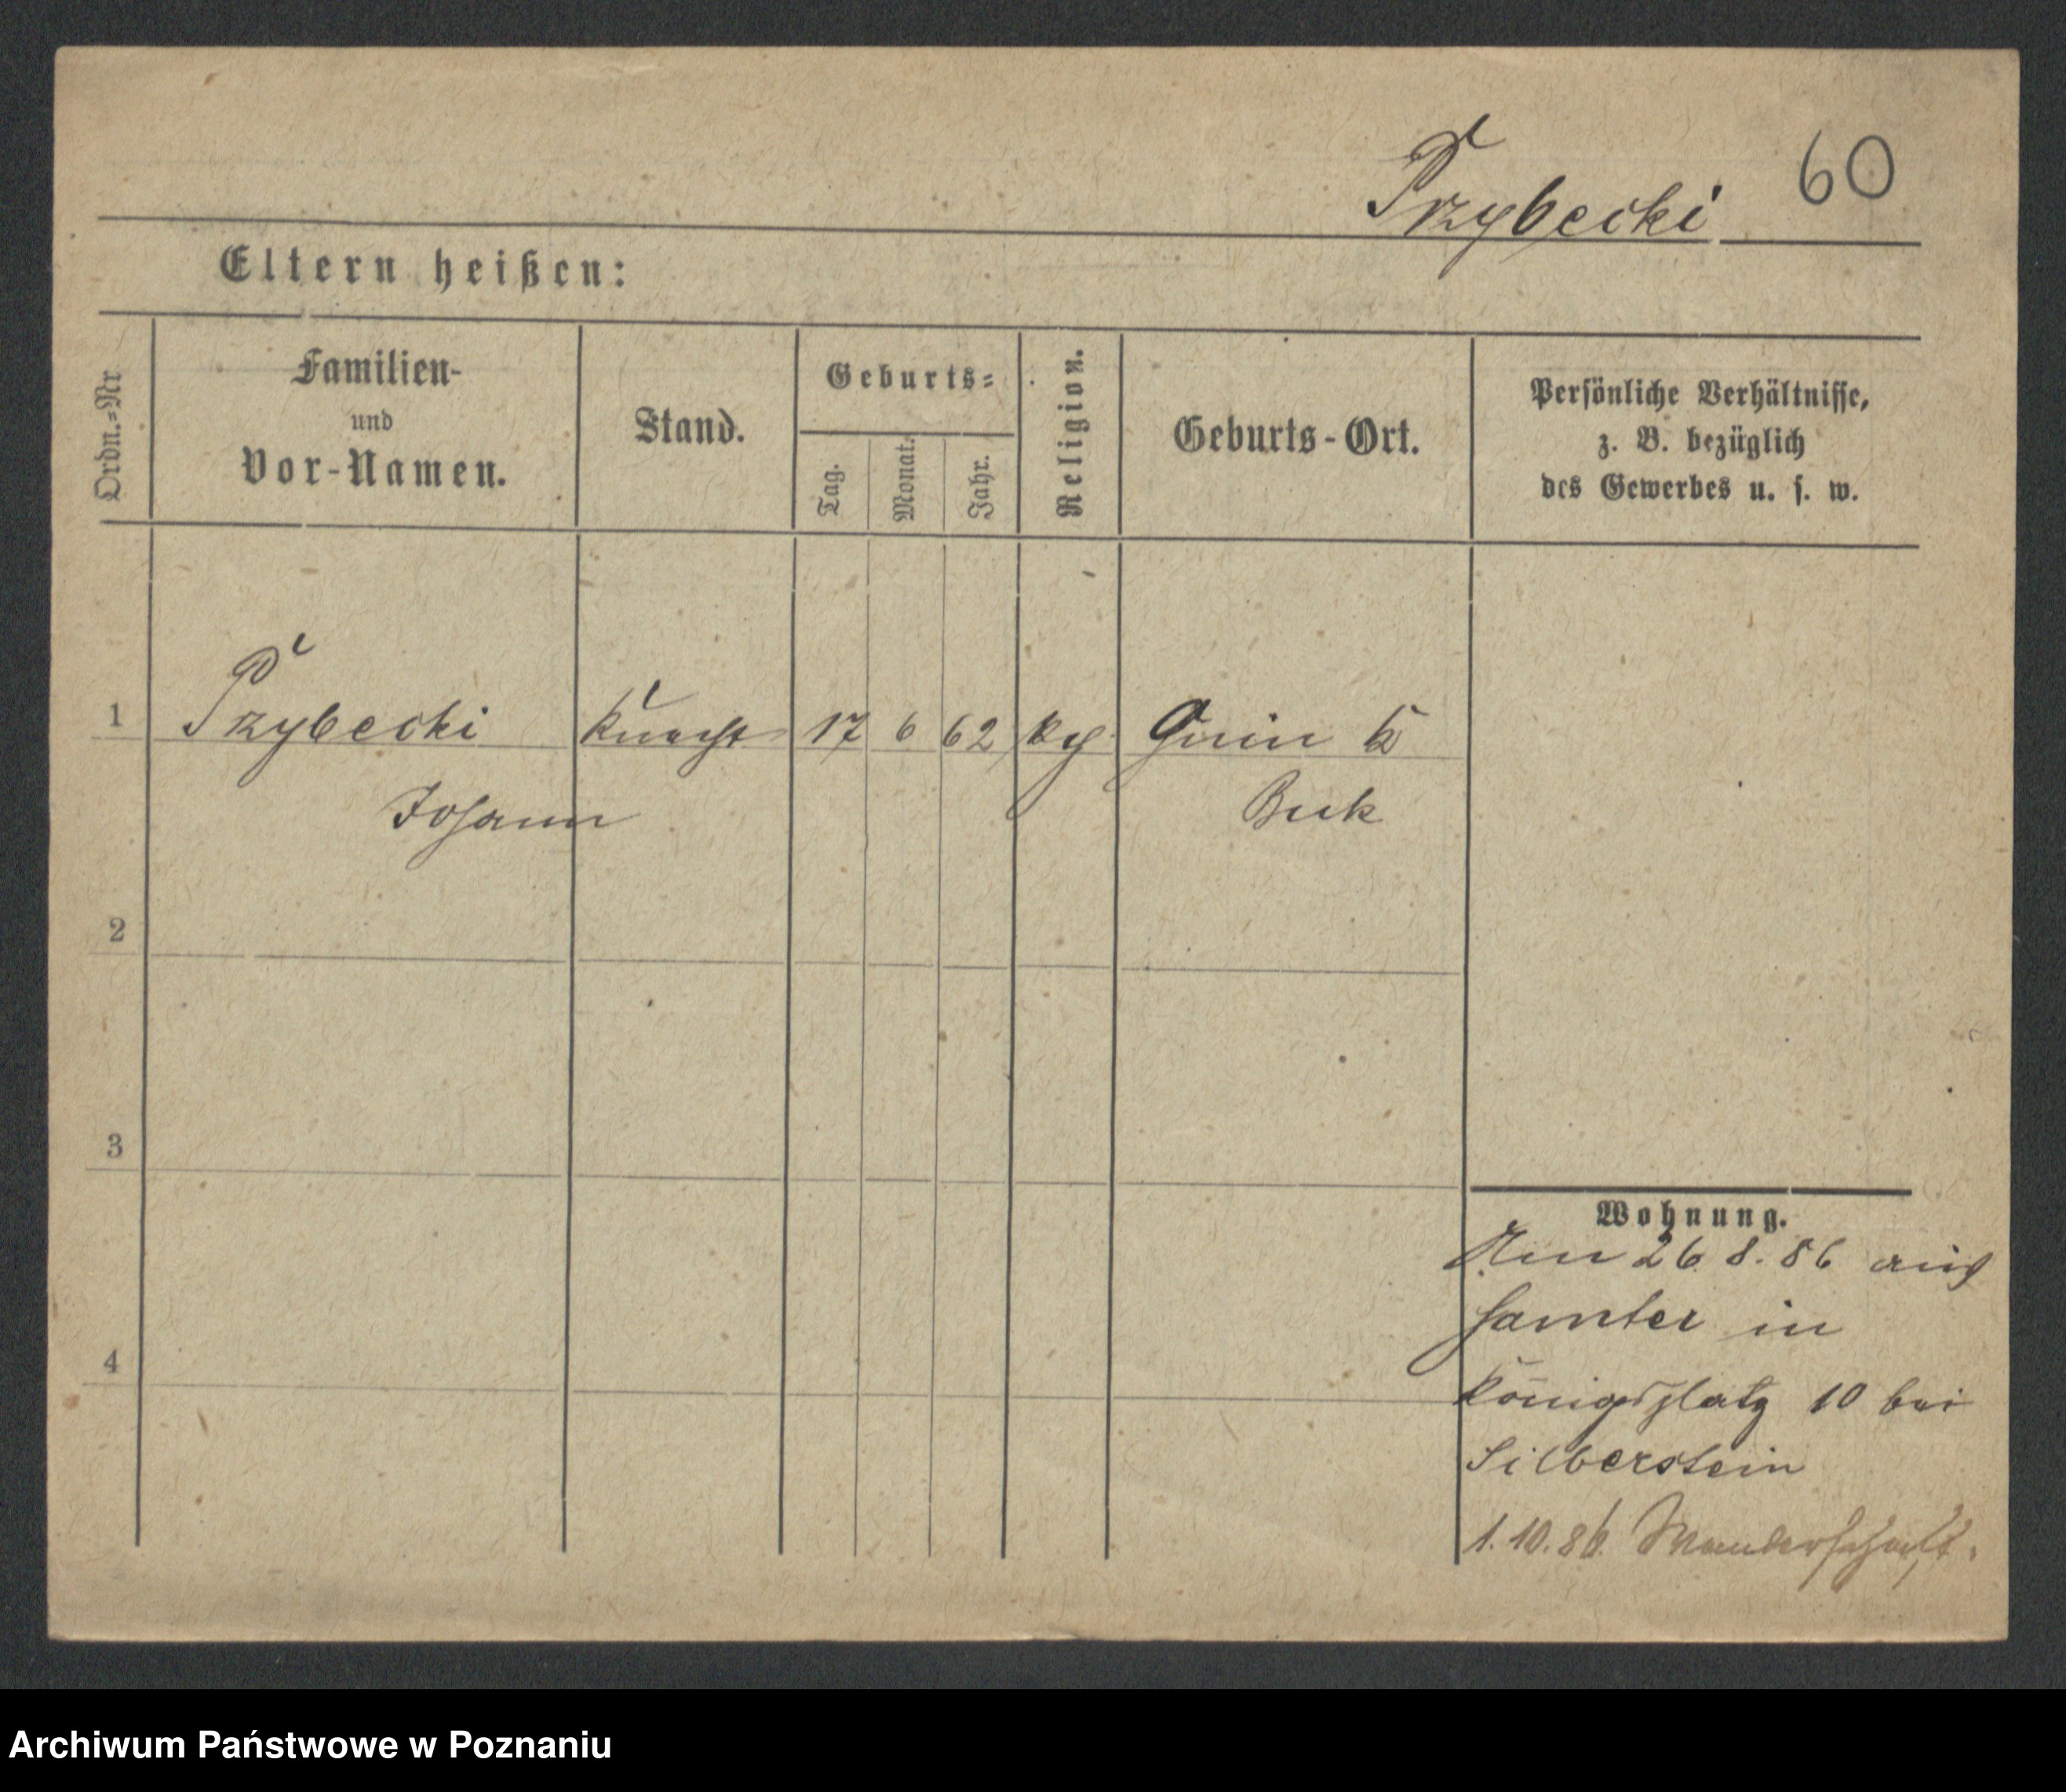 Przybecki 60
Eltern heißen:
Ordn.=Nr
Familien-
und
Vor-Namen.
Stand.
Geburts=
Tag.
Monat.
Jahr.
Religion.
Geburts-Ort.
Persönliche Verhältnisse,
z. B. bezüglich
des Gewerbes u. s. w.
1 Przybecki Knecht 17 6 62
Johann Buk
2
3
4
Wohnung.
26. 8. 86 aus
Samter in
Königsplatz 10 bei
Silberstein
1. 10. 86. Wanderschaft.
Archiwum Państwowe w Poznaniu